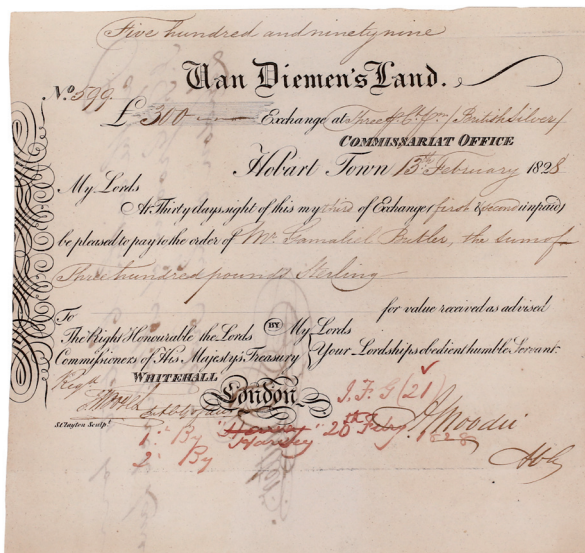 Five hundred and ninetynine
Van Diemen's Land.
No. 599
£300 Exchange at Three / British Silver /
COMMISSARIAT OFFICE
Hobart Town 13th February 1828
My Lords
At Thirty days sight of this my third of Exchange (first & second unpaid)
be pleased to pay to the order of Mr. Gamaliel Butler, the sum of
Three hundred pounds Sterling
for value received as advised
To
The Right Honourable the Lords BY My Lords
Commissioners of His Majesty's Treasury Your Lordships obedient humble Servant.
WHITEHALL
London
Regd
J. F. G (21)
S. Clayton Sculpt.
1st By "Harvey" 20th Feby. 1828
2d By
Moodie